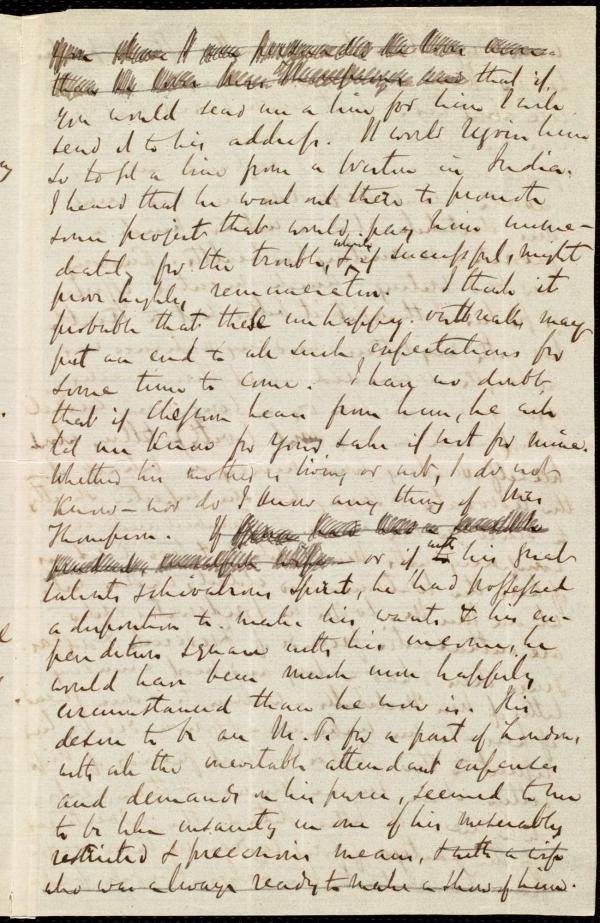 that if
you would send me a line for him I will
send it to his address. It would rejoice him
so to get a line from a Weston in India.
I heard that he went out there to promote
some project that would pay him imme-
diately for the trouble, & if successful, might
prove highly remunerative. I think it
probable that these unhappy outbreaks may
put an end to all such expectations for
some time to come. I have no doubt
that if Chesson hears from him, he will
let me know for your sake if not for mine.
Whether his mother is living or not, I do not
know – nor do I know any thing of Mrs
Thompson. If
or if with his great
talents & chivalrous spirit, he had possessed
a disposition to make his wants & his ex-
penditure square with his income, he
would have been much more happily
circumstanced than he now is. His
desire to be an M.P. for a part of London,
with all the inevitable attendant expenses
and demands on his purse, seemed to me
to be like insanity in one of his miserably
restricted & precarious means, & with a wife
who was always ready to make a show of him.